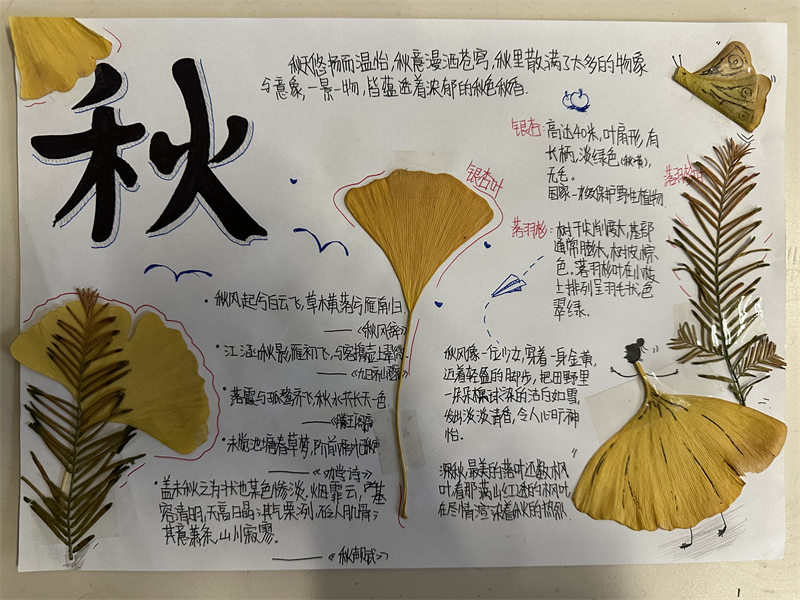 秋
秋天悠扬而温怡,秋意漫洒苍穹,秋里散满了太多的物象
与意象,一景一物,皆蕴透着浓郁的秋色秋香.
银杏:高达40米,叶扇形,有
长柄,淡绿色(秋黄),
无毛。
国家一级保护野生植物
银杏叶
落羽杉:树干尖削度大,基部
通常膨大,树皮棕
色。落羽杉叶在小枝
上排列呈羽毛状,色
翠绿.
秋风起兮白云飞,草木黄落兮雁南归.
——《秋风辞》
江涵秋影雁初飞,与客携壶上翠微.
——《九日齐山登高》
落霞与孤鹜齐飞,秋水共长天一色.
——《滕王阁序》
未觉池塘春草梦,阶前梧叶已秋声
——《劝学诗》
盖夫秋之为状也:其色惨淡,烟霏云,其
容清明,天高日晶;其气栗冽,砭人肌骨;
其意萧条,山川寂寥.
——《秋声赋》
秋风像一位少女,穿着一身金黄,
迈着轻盈的脚步,把田野里
一朵朵
洁白如雪,
发出淡淡清香,令人心旷神
怡.
深秋,最美的落叶还数枫
叶,看那满山红透的枫叶
在尽情渲染着秋的热烈.